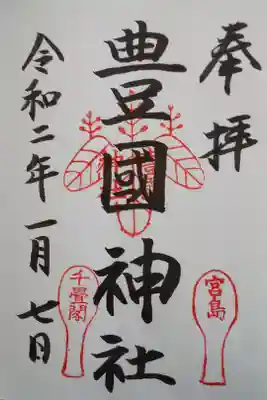 奉拝
豊國神社
令和二年一月七日
宮島
千畳閣